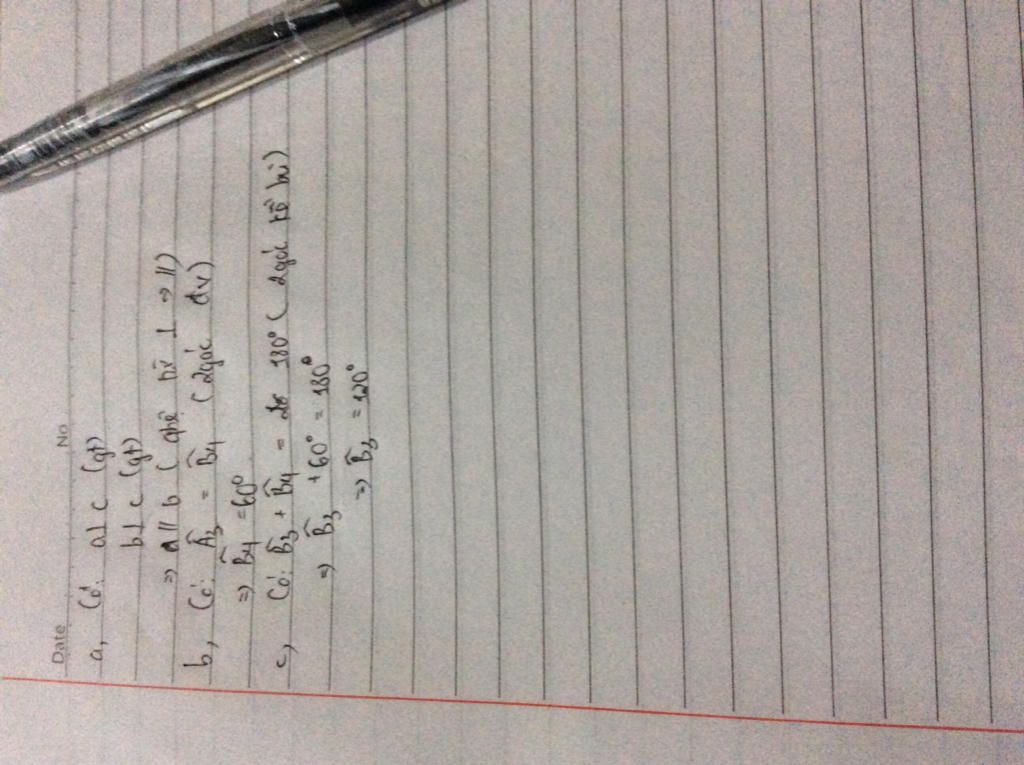 Date No
a, Có: a⊥c (gt)
b⊥c (gt)
=> a // b ( qhệ từ ⊥ → //)
b, Có: Â₃ = B̂₄ (2góc đv)
=> B̂₄ = 60°
c, Có: B̂₃ + B̂₄ = 180° ( 2góc kề bù)
=> B̂₃ + 60° = 180°
=> B̂₃ = 120°